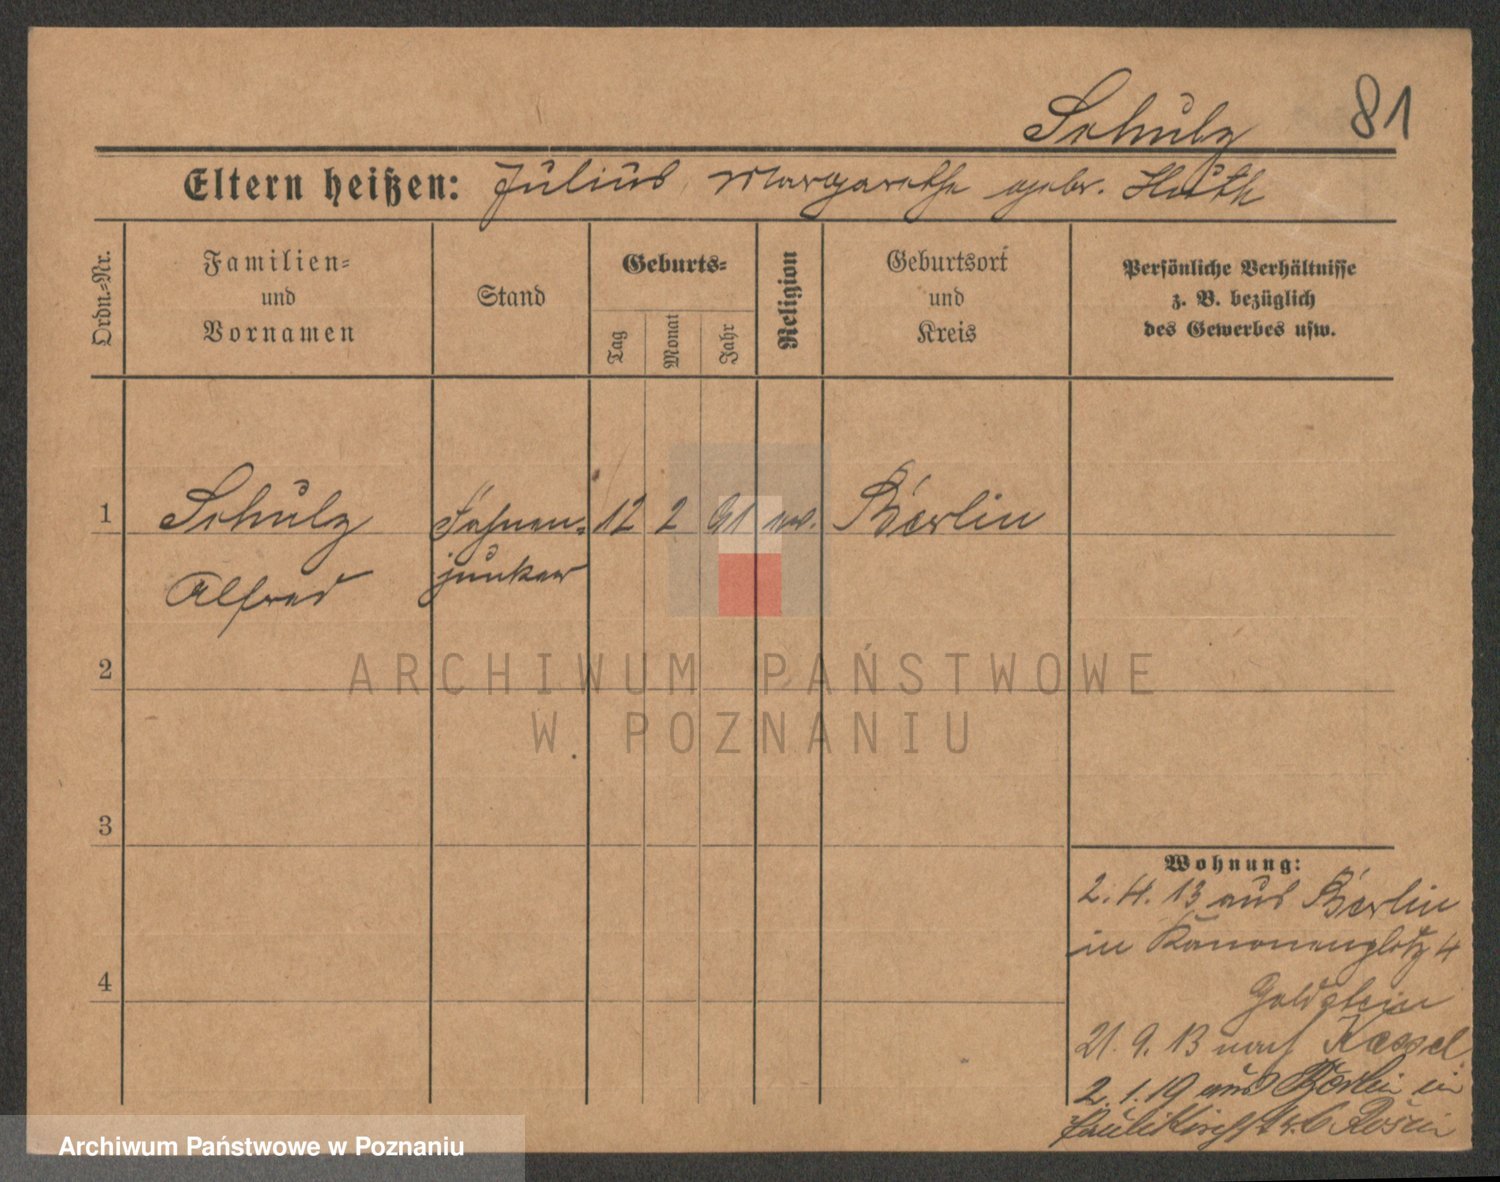 81
Schulz
Eltern heißen: Julius, Margarethe gebr. Huth
Ordn.-Nr.
Familien-
und
Vornamen
Stand
Geburts-
Tag
Monat
Jahr
Religion
Geburtsort
und
Kreis
Persönliche Verhältnisse
z. B. bezüglich
des Gewerbes usw.
1
Schulz
Alfred
Fahnen-
junker
12 2 91 ev.
Berlin
2
3
4
ARCHIWUM PAŃSTWOWE
W POZNANIU
Wohnung:
2. 4. 13 aus Berlin
in Kanonenplatz 4
Goldstein
21. 9. 13 nach Kassel
2. 1. 19 aus Berlin in
Archiwum Państwowe w Poznaniu